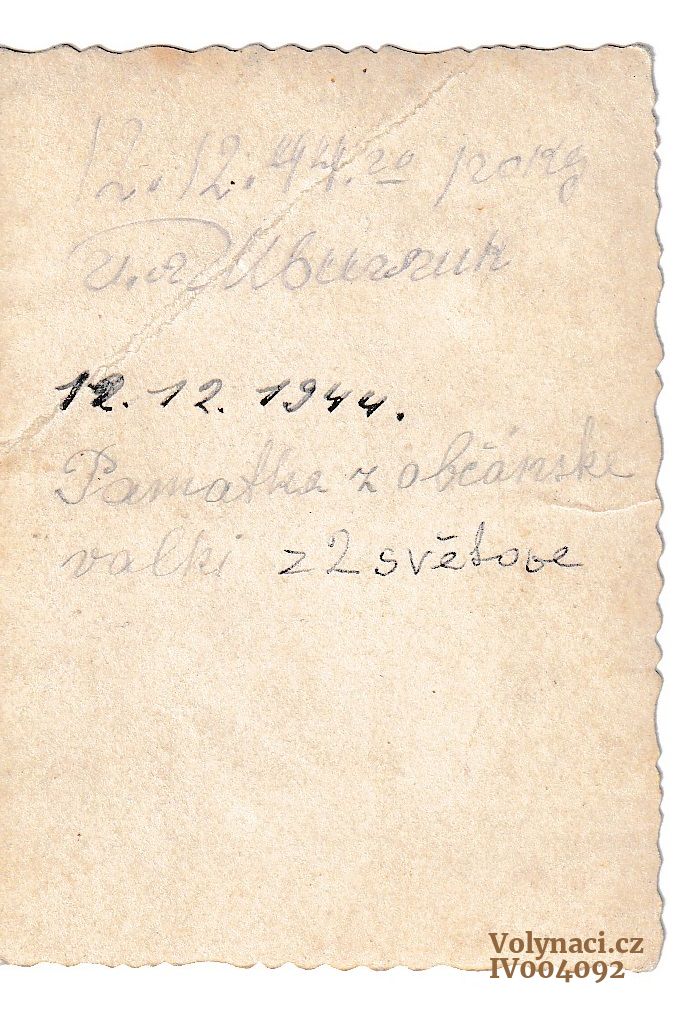 12.12.44.го рокŋ
12.12.1944.
Pamatka z občánske
valki z 2 světove
Volynaci.cz
IV004092